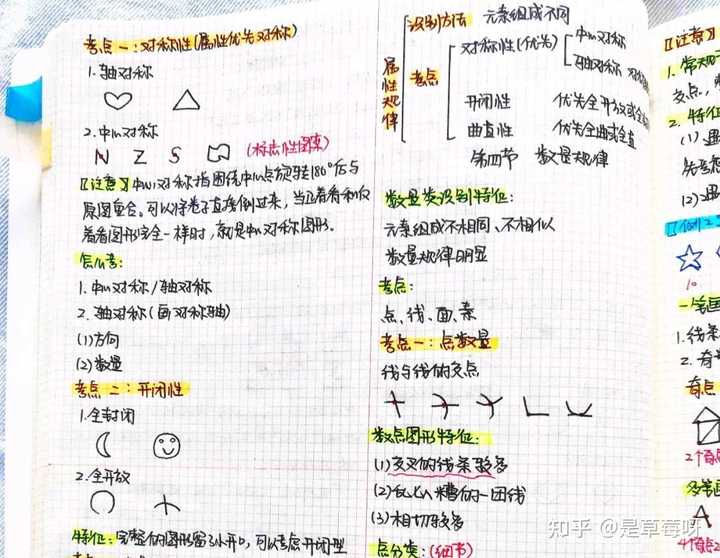 考点一：对称性(属性优先对称)
1.轴对称
2.中心对称
N Z S (标志性图案)
【注意】中心对称指围绕中心点旋转180°后与
原图重合。可以将卷子直接倒过来，当正着看和反
着看图形完全一样时，就是中心对称图形。
怎么考：
1.中心对称/轴对称
2.轴对称(画对称轴)
(1)方向
(2)数量
考点二：开闭性
1.全封闭
2.全开放
特征：完整的图形留了小开口，可以考虑开闭型
属性规律
识别方法 元素组成不同
考点
对称性(优先)
中心对称
轴对称
开闭性 优先全开放或全
曲直性 优先全曲或全直
第四节 数量规律
数量类识别特征：
元素组成不相同、不相似
数量规律明显
考点：
点、线、面、素
考点一：点数量
线与线的交点
数点图形特征：
(1)交叉的线条较多
(2)乱七八糟的一团线
(3)相切较多
点分类：(细节)
【注意】
1.常规
交点，
2.特征
(1)
先考
(2)
一笔画
1.线条
2.奇
奇点
2个奇
多笔画
4个奇点
10
知乎 @是草莓呀